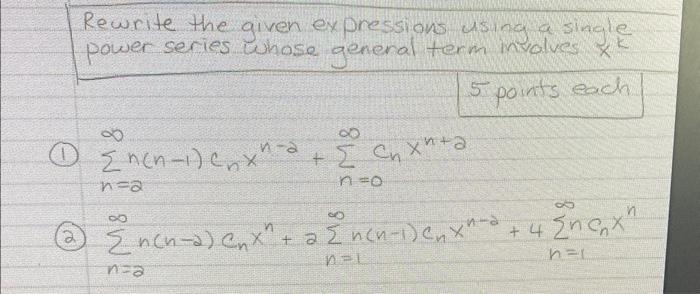 Rewrite the given expressions using a single
power series whose general term involves x^k
5 points each
① ∞∑n=2 n(n-1) cₙxⁿ⁻² + ∞∑n=0 cₙxⁿ⁺²
② ∞∑n=2 n(n-2) cₙxⁿ + 2 ∞∑n=1 n(n-1) cₙxⁿ⁻² + 4 ∞∑n=1 ncₙxⁿ